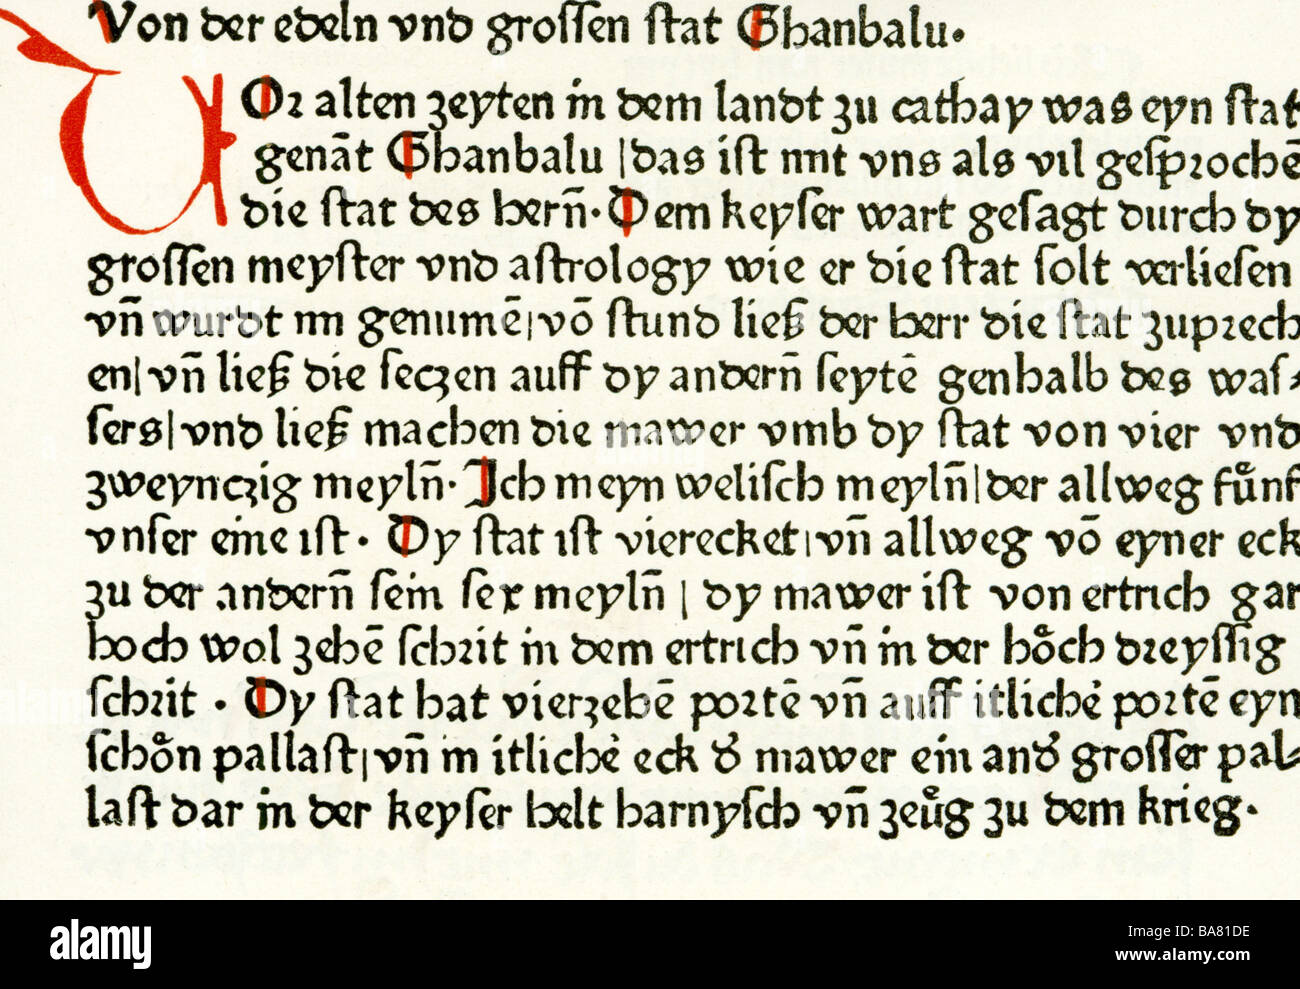 Von der edeln vnd grossen stat Ghanbalu.
VOr alten zeyten in dem landt zu cathay was eyn stat
genāt Ghanbalu |das ist nnt vns als vil gesprochē
die stat des hern̄. Dem keyser wart gesagt durch dy
grossen meyster vnd astrology wie er die stat solt verliesen
vn̄ wurdt nn genumē|vō stund ließ der herr die stat zuprech
en|vn̄ ließ die seczen auff dy andern̄ seytē genhalb des was⸗
sers|vnd ließ machen die mawer vmb dy stat von vier vnd
zweynczig meyln̄. Ich meyn welisch meyln̄|der allweg fuͦnf
vnser eine ist. Dy stat ist vierecket|vn̄ allweg vō eyner eck
zu der andern̄ sein sex meyln̄ | dy mawer ist von ertrich gar
hoch wol zehē schrit in dem ertrich vn̄ in der hoͤch dreyssig
schrit . Dy stat hat vierzehē portē vn̄ auff itlichē portē eyn
schoͤn pallast|vn̄ in itlichē eck d' mawer ein and' grosser pal⸗
last dar in der keyser helt harnysch vn̄ zeuͦg zu dem krieg.
alamy
Image ID: BA81DE
www.alamy.com